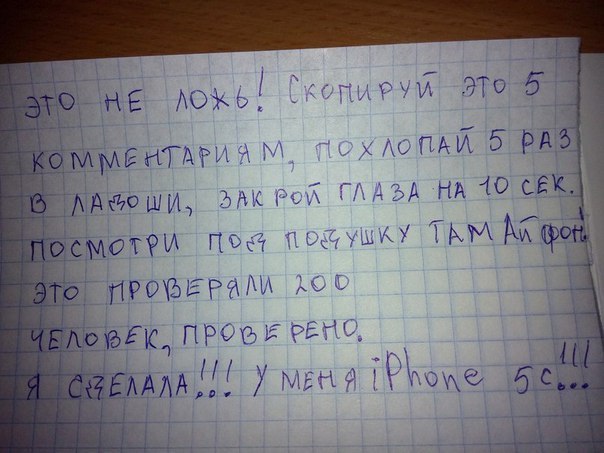 ЭТО НЕ ЛОЖЬ! СКОПИРУЙ ЭТО 5
КОММЕНТАРИЯМ, ПОХЛОПАЙ 5 РАЗ
В ЛАДОШИ, ЗАКРОЙ ГЛАЗА НА 10 СЕК.
ПОСМОТРИ ПОД ПОДУШКУ ТАМ АЙФОН!
ЭТО ПРОВЕРЯЛИ 200
ЧЕЛОВЕК, ПРОВЕРЕНО.
Я СДЕЛАЛА!!! У МЕНЯ iPhone 5c!!!